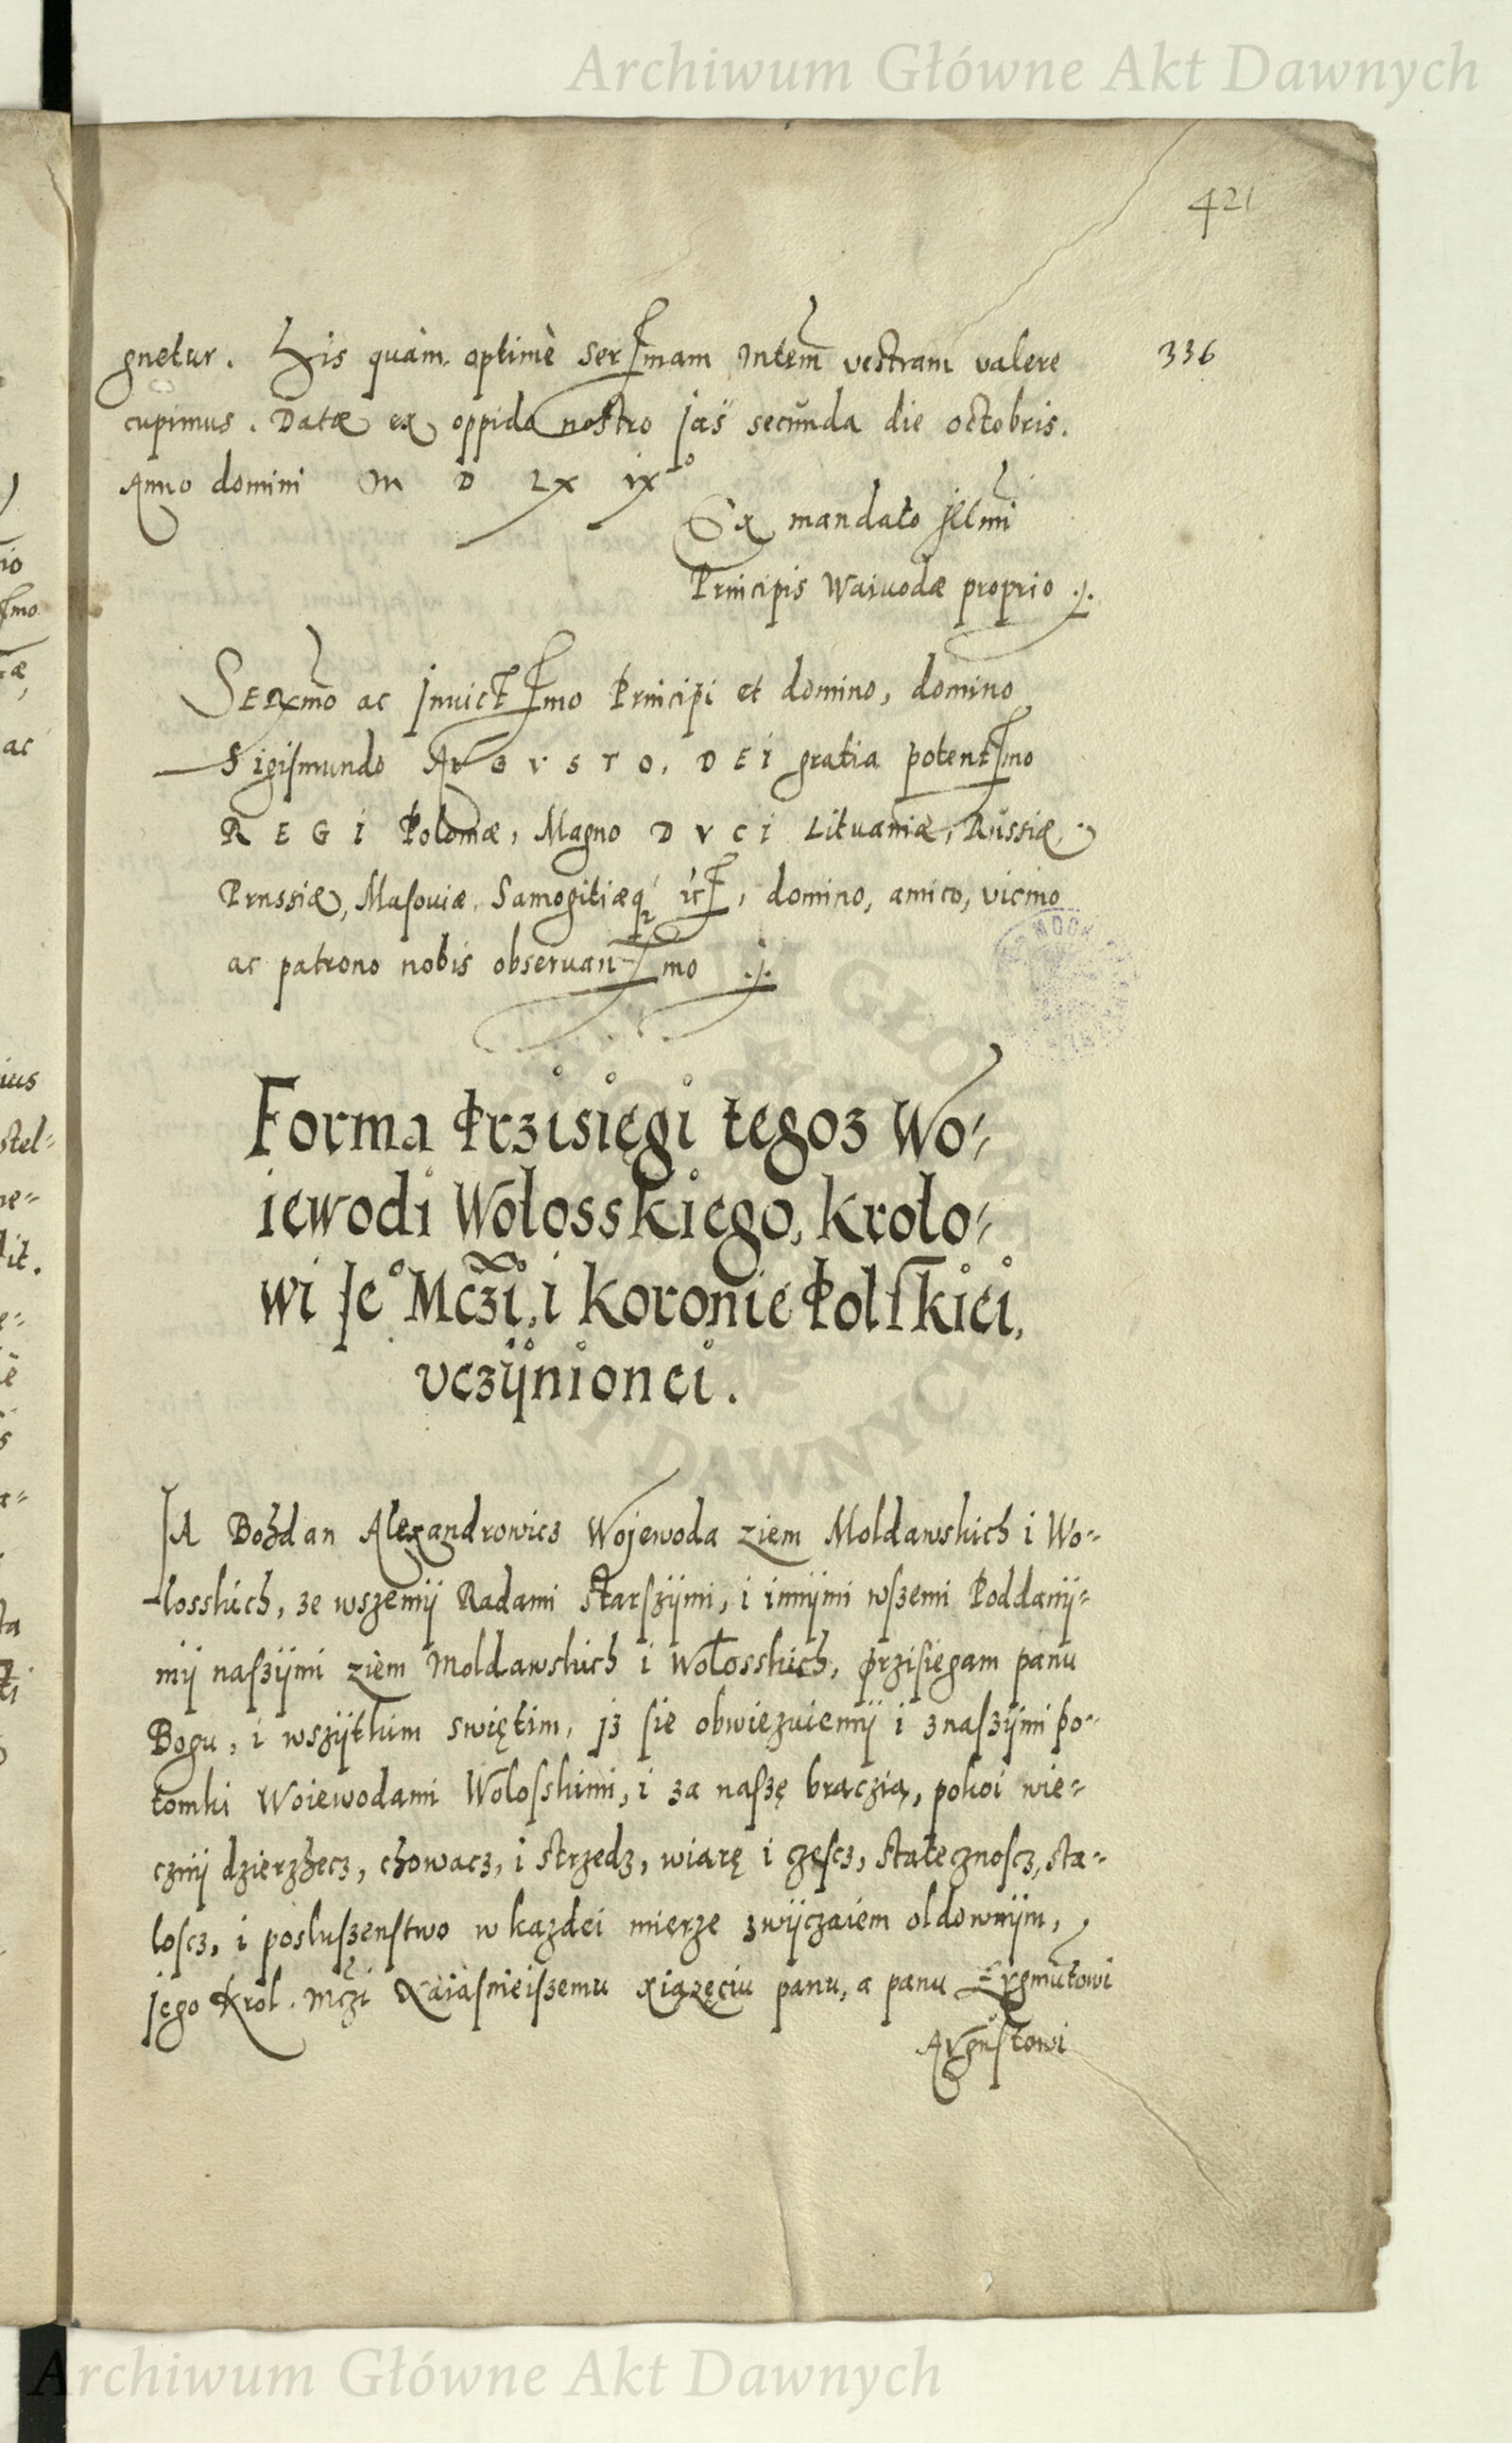 Archiwum Główne Akt Dawnych
421
336
gnetur. His quàm optimè serſmam Mtem vestram valere
cupimus. Datæ ex oppido nostro jas secunda die octobris.
Anno domini M D LX ix°
Ex mandato jllmi
Principis Waiuodæ proprio ./.
SERmo ac jnvictſmo Principi et domino, domino
Sigiſmundo AVGVSTO, DEI gratia potentſmo
REGI Poloniæ, Magno DVCI Lituaniæ, Russiæ,
Prussiæ, Maſouiæ, Samogitiæq, domino, amico, vicino
ac patrono nobis obseruanſmo ./.
Forma Przisięgi tegoz Wo=
iewodi Wołosskiego, Kroło=
wi Je° Mczi, i Koronie Polſkiei,
vczÿnionei.
JA Bohdan Alexandrowicz Wojewoda ziem Moldawskich i Wo=
losskich, ze wszemÿ Radami starſzÿmi, i innÿmi wſzemi Poddanÿ=
mÿ naſzÿmi ziem Moldawskich i Wołosskich, przisiegam panu
Bogu, i wszÿtkim swiętim, jz ſie obwiezuiemÿ i znaſzÿmi po=
tomki Woiewodami Woloſskimi, i za naſzę braczią, pokoi wie=
cznÿ dzierzhecz, chowacz, i strzedz, wiarę i czeſcz, stałecznoſcz, sta=
loſcz, i posluſzenſtwo w kazdei mierze zwÿczaiem oldownÿm,
jego Krol. Mczi Naiaſnieiſzemu xiązęciu panu, a panu Zygmuntowi
Avguſtowi
Archiwum Główne Akt Dawnych